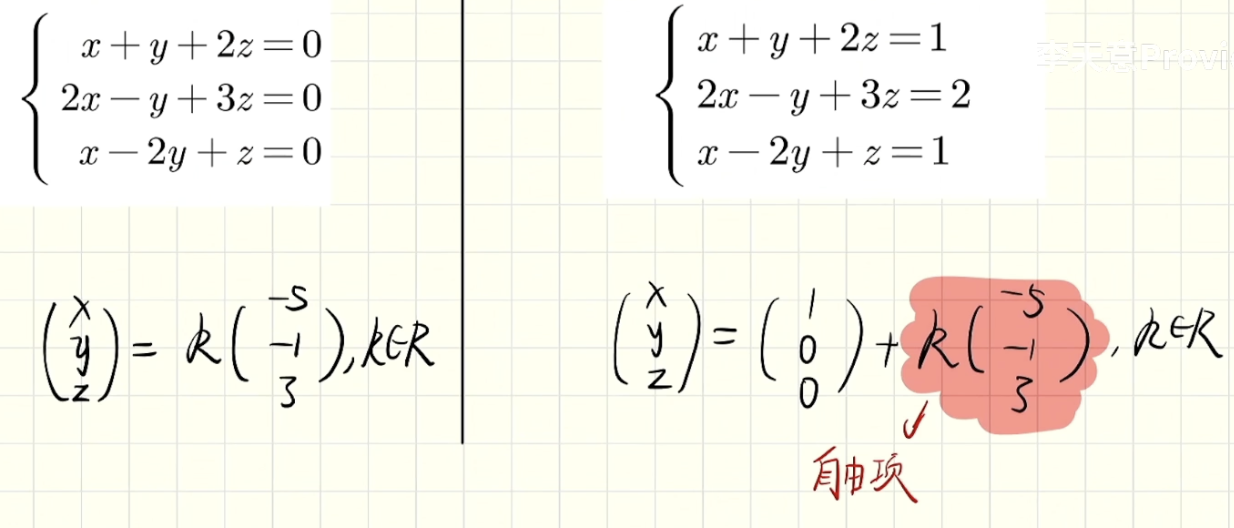 x + y + 2z = 0
2x − y + 3z = 0
x − 2y + z = 0
(x y z) = k (-5 -1 3), k∈R
x + y + 2z = 1
2x − y + 3z = 2
x − 2y + z = 1
(x y z) = (1 0 0) + k (-5 -1 3), k∈R
自由项